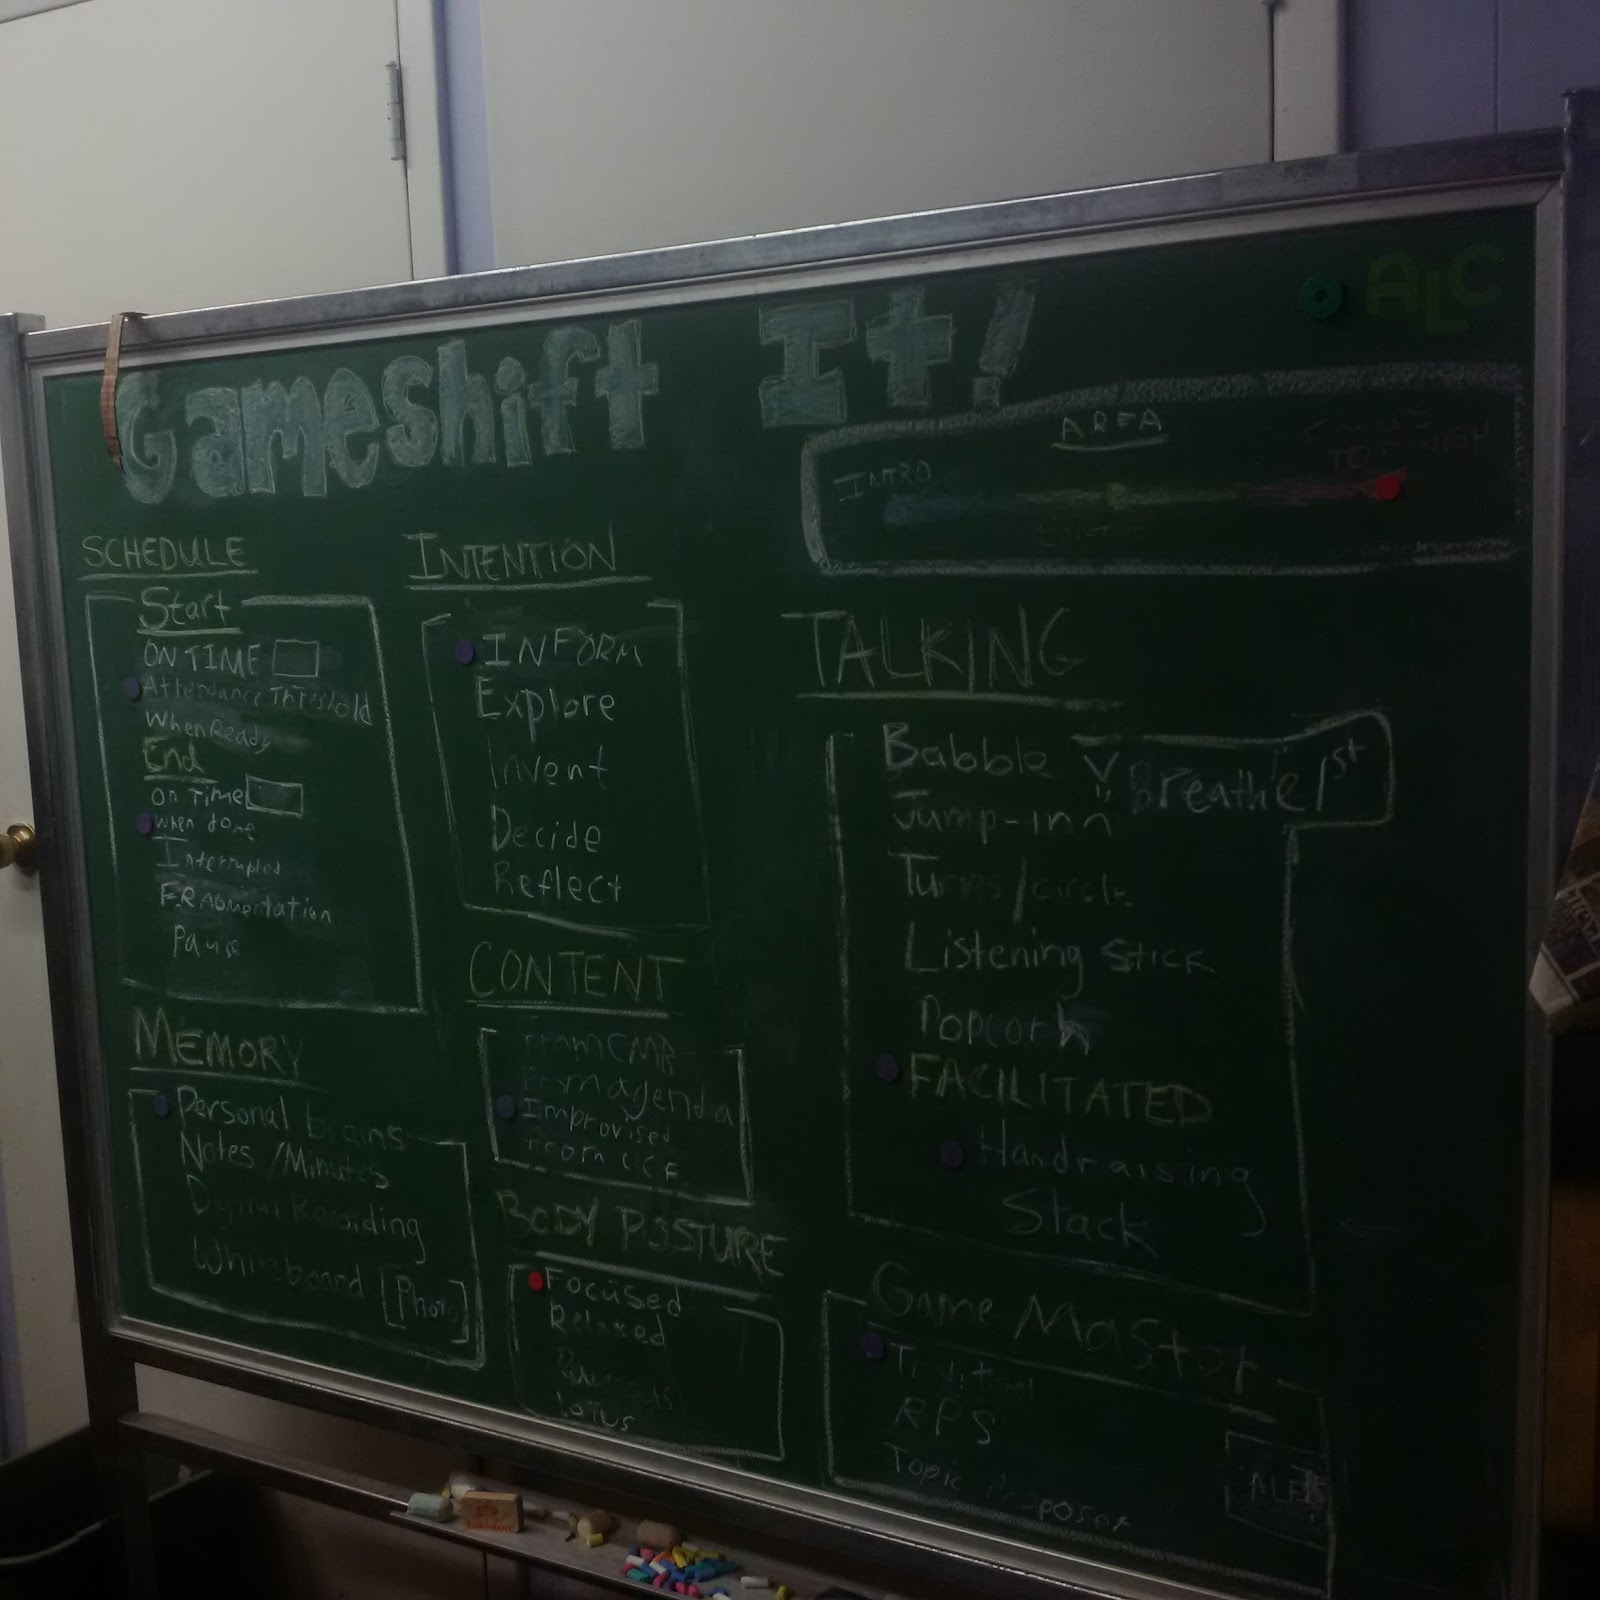 Gameshift It!
ALC
AREA
INTRO
TO FINISH
SCHEDULE
Start
ON TIME
Attendance Threshold
When Ready
End
on Time
when done
Interrupted
FRAGMentation
Pause
MEMORY
Personal brains
Notes /Minutes
Digital Recording
Whiteboard [Photo]
INTENTION
INFORM
Explore
Invent
Decide
Reflect
CONTENT
From CMB
From agenda
Improvised
From
BODY POSTURE
Focused
Relaxed
Lotus
TALKING
Babble
Breathe 1st
Jump-inn
Turns/circle
Listening stick
Popcorn
FACILITATED
Handraising
Stack
Game Master
Traditional
RPS
Topic Proposer